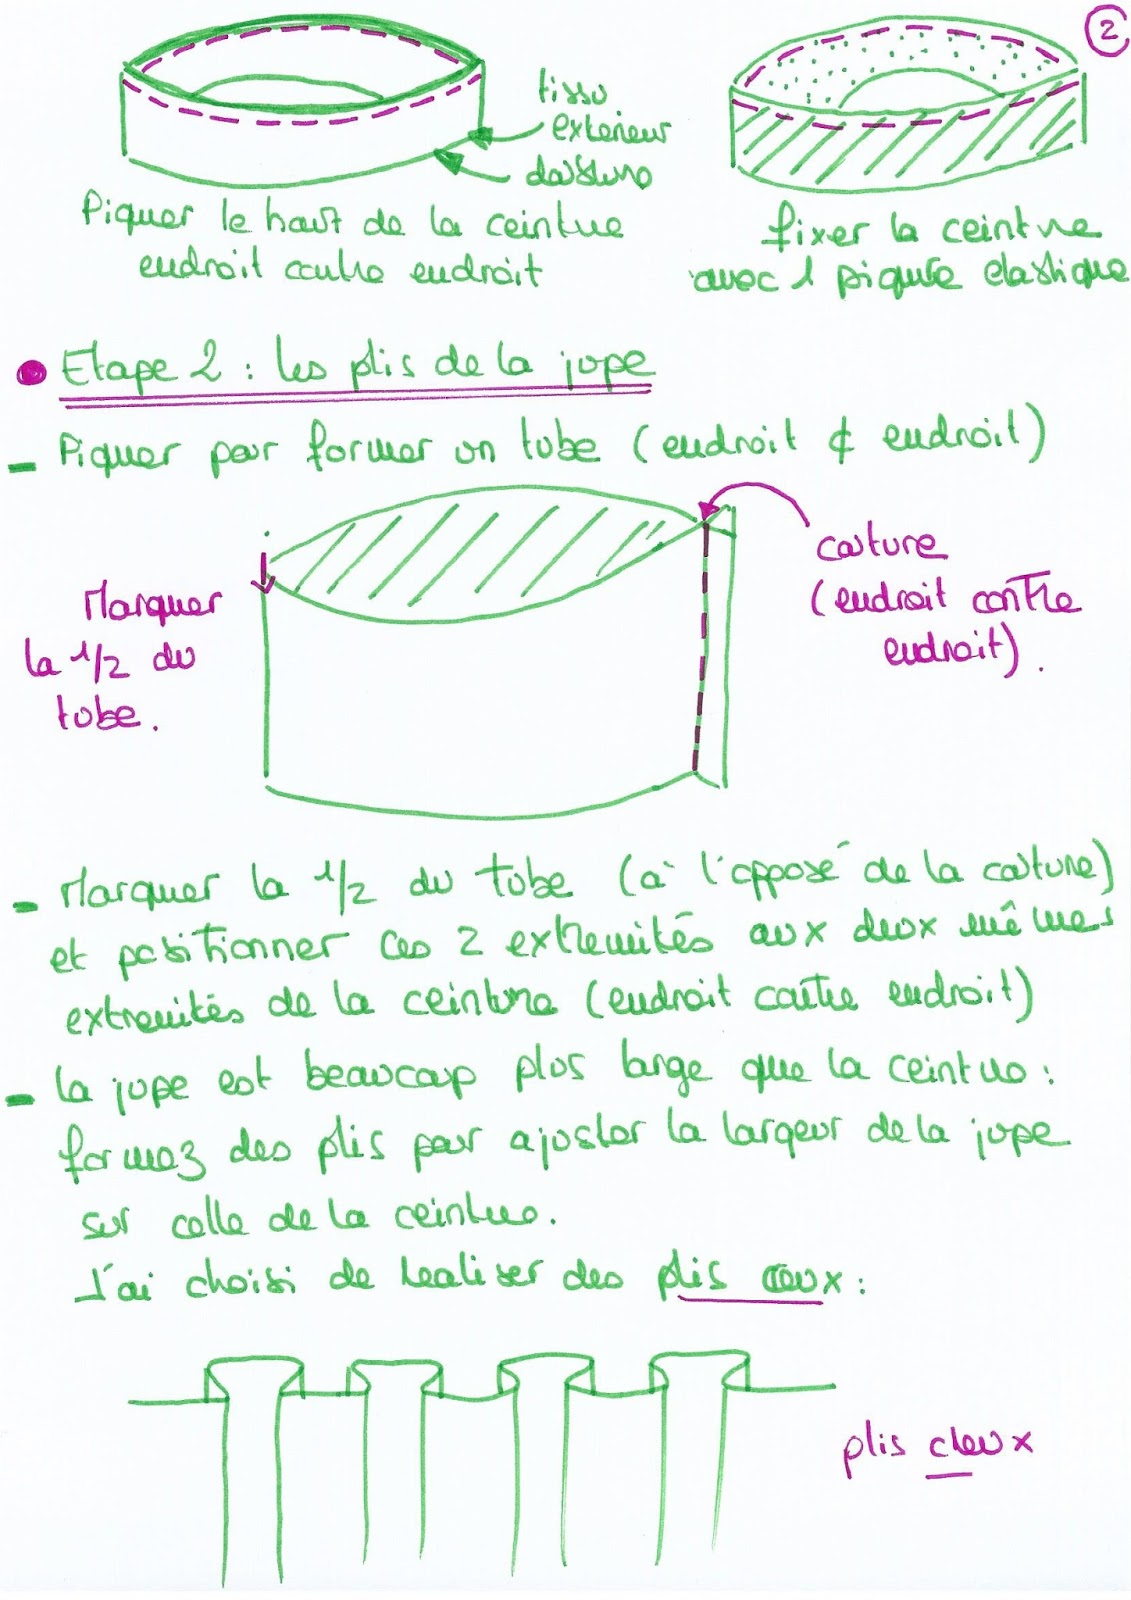 2
tissu
exterieur
doublure
Piquer le haut de la ceinture
endroit contre endroit
fixer la ceinture
avec 1 piqure elastique
Etape 2 : les plis de la jupe
- Piquer pour former un tube (endroit & endroit)
couture
(endroit contre
endroit).
Marquer
la 1/2 du
tube.
- Marquer la 1/2 du tube (à l'opposé de la couture)
et positionner ces 2 extremités aux deux mêmes
extremités de la ceinture (endroit contre endroit)
- la jupe est beaucoup plus large que la ceinture :
formez des plis pour ajuster la largeur de la jupe
sur celle de la ceinture.
J'ai choisi de realiser des plis creux :
plis creux